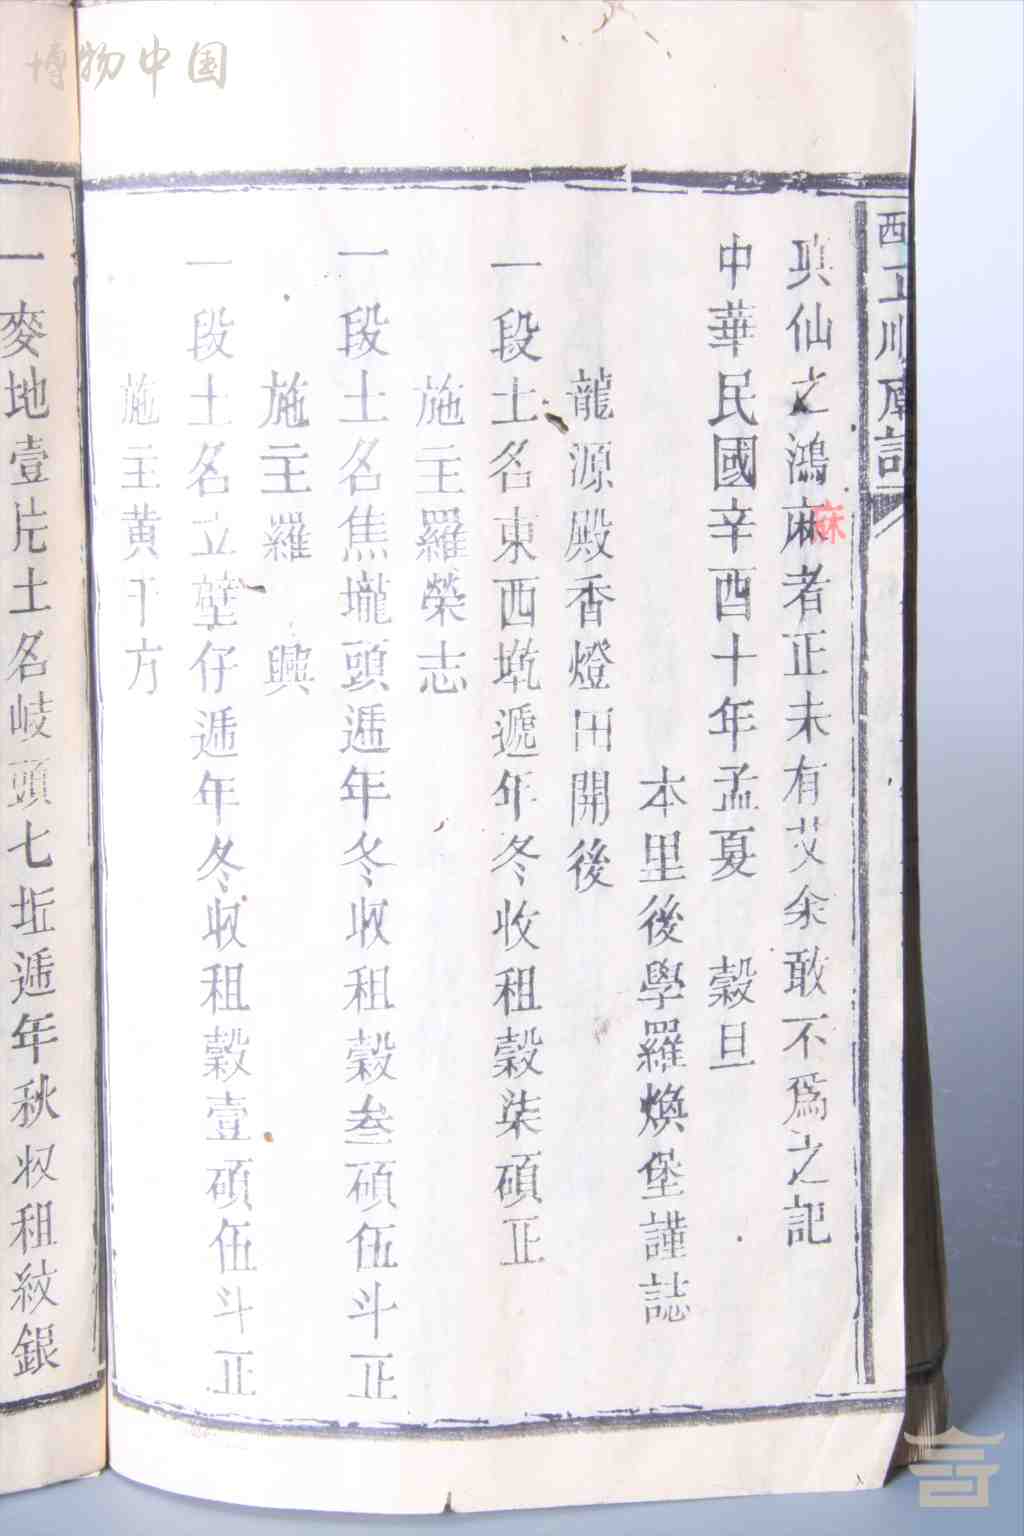 博物中国
真仙之鴻麻者正未有艾余敢不爲之記
麻
中華民國辛酉十年孟夏 穀旦
本里後學羅煥堡謹誌
龍源殿香燈田開後
一段土名東西墘遞年冬收租穀柒碩正
施主羅榮志
一段土名焦壠頭遞年冬收租穀叁碩伍斗正
施主羅 興
一段土名立壁仔遞年冬收租穀壹碩伍斗正
施主黄千方
一麥地壹片土名岐頭七坵遞年秋収租紋銀